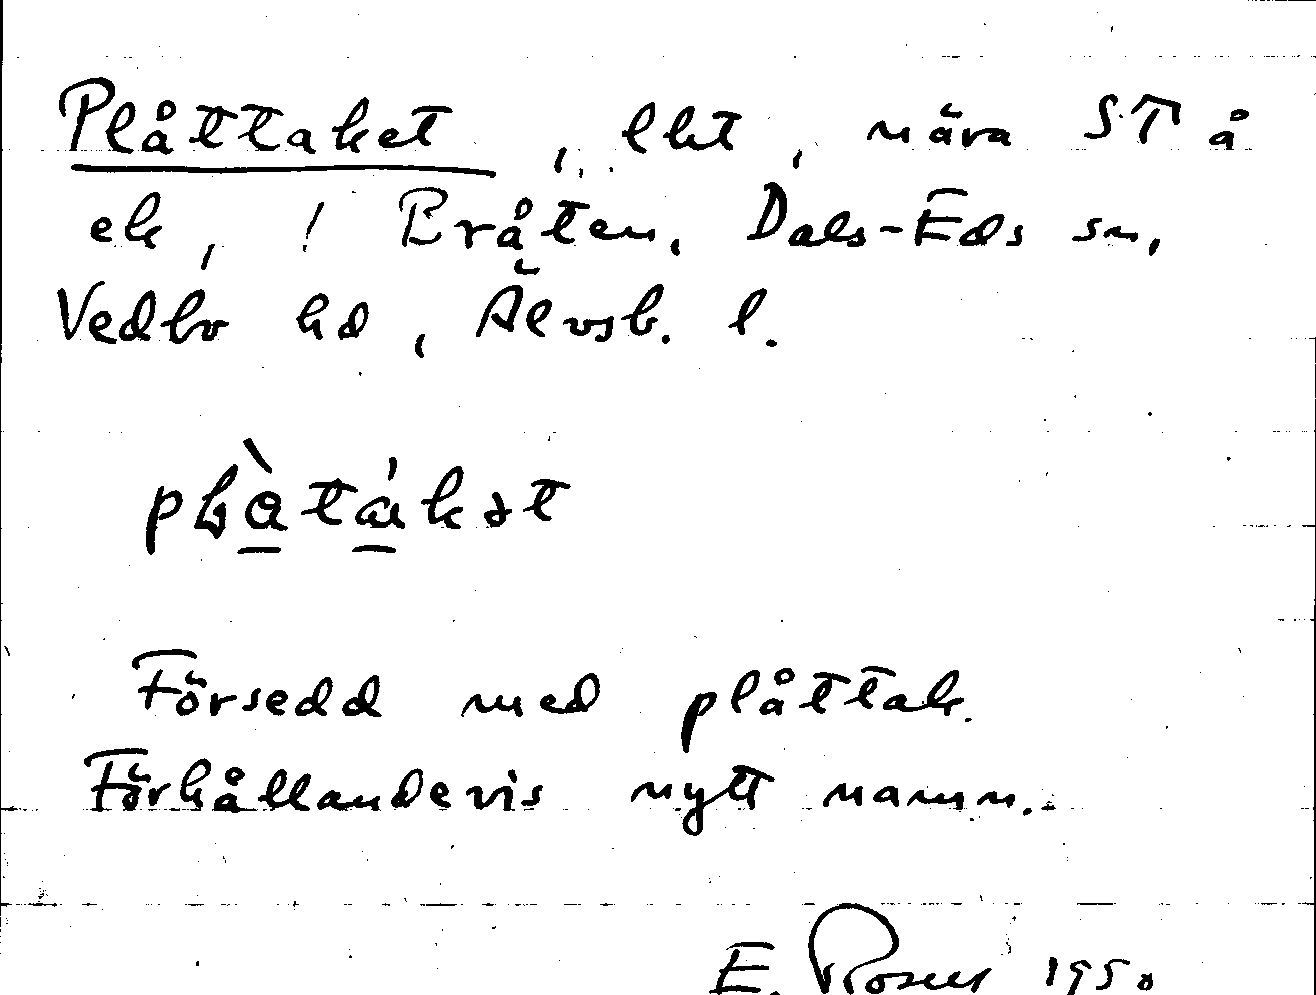 Plåttaket, lht, nära ST å
ek, ! Bråten, Dals-Eds sn,
Vedbo hd, Älvsb. l.
Försedd med plåttak.
Förhållandevis nytt namn.
E. Rosell 1950